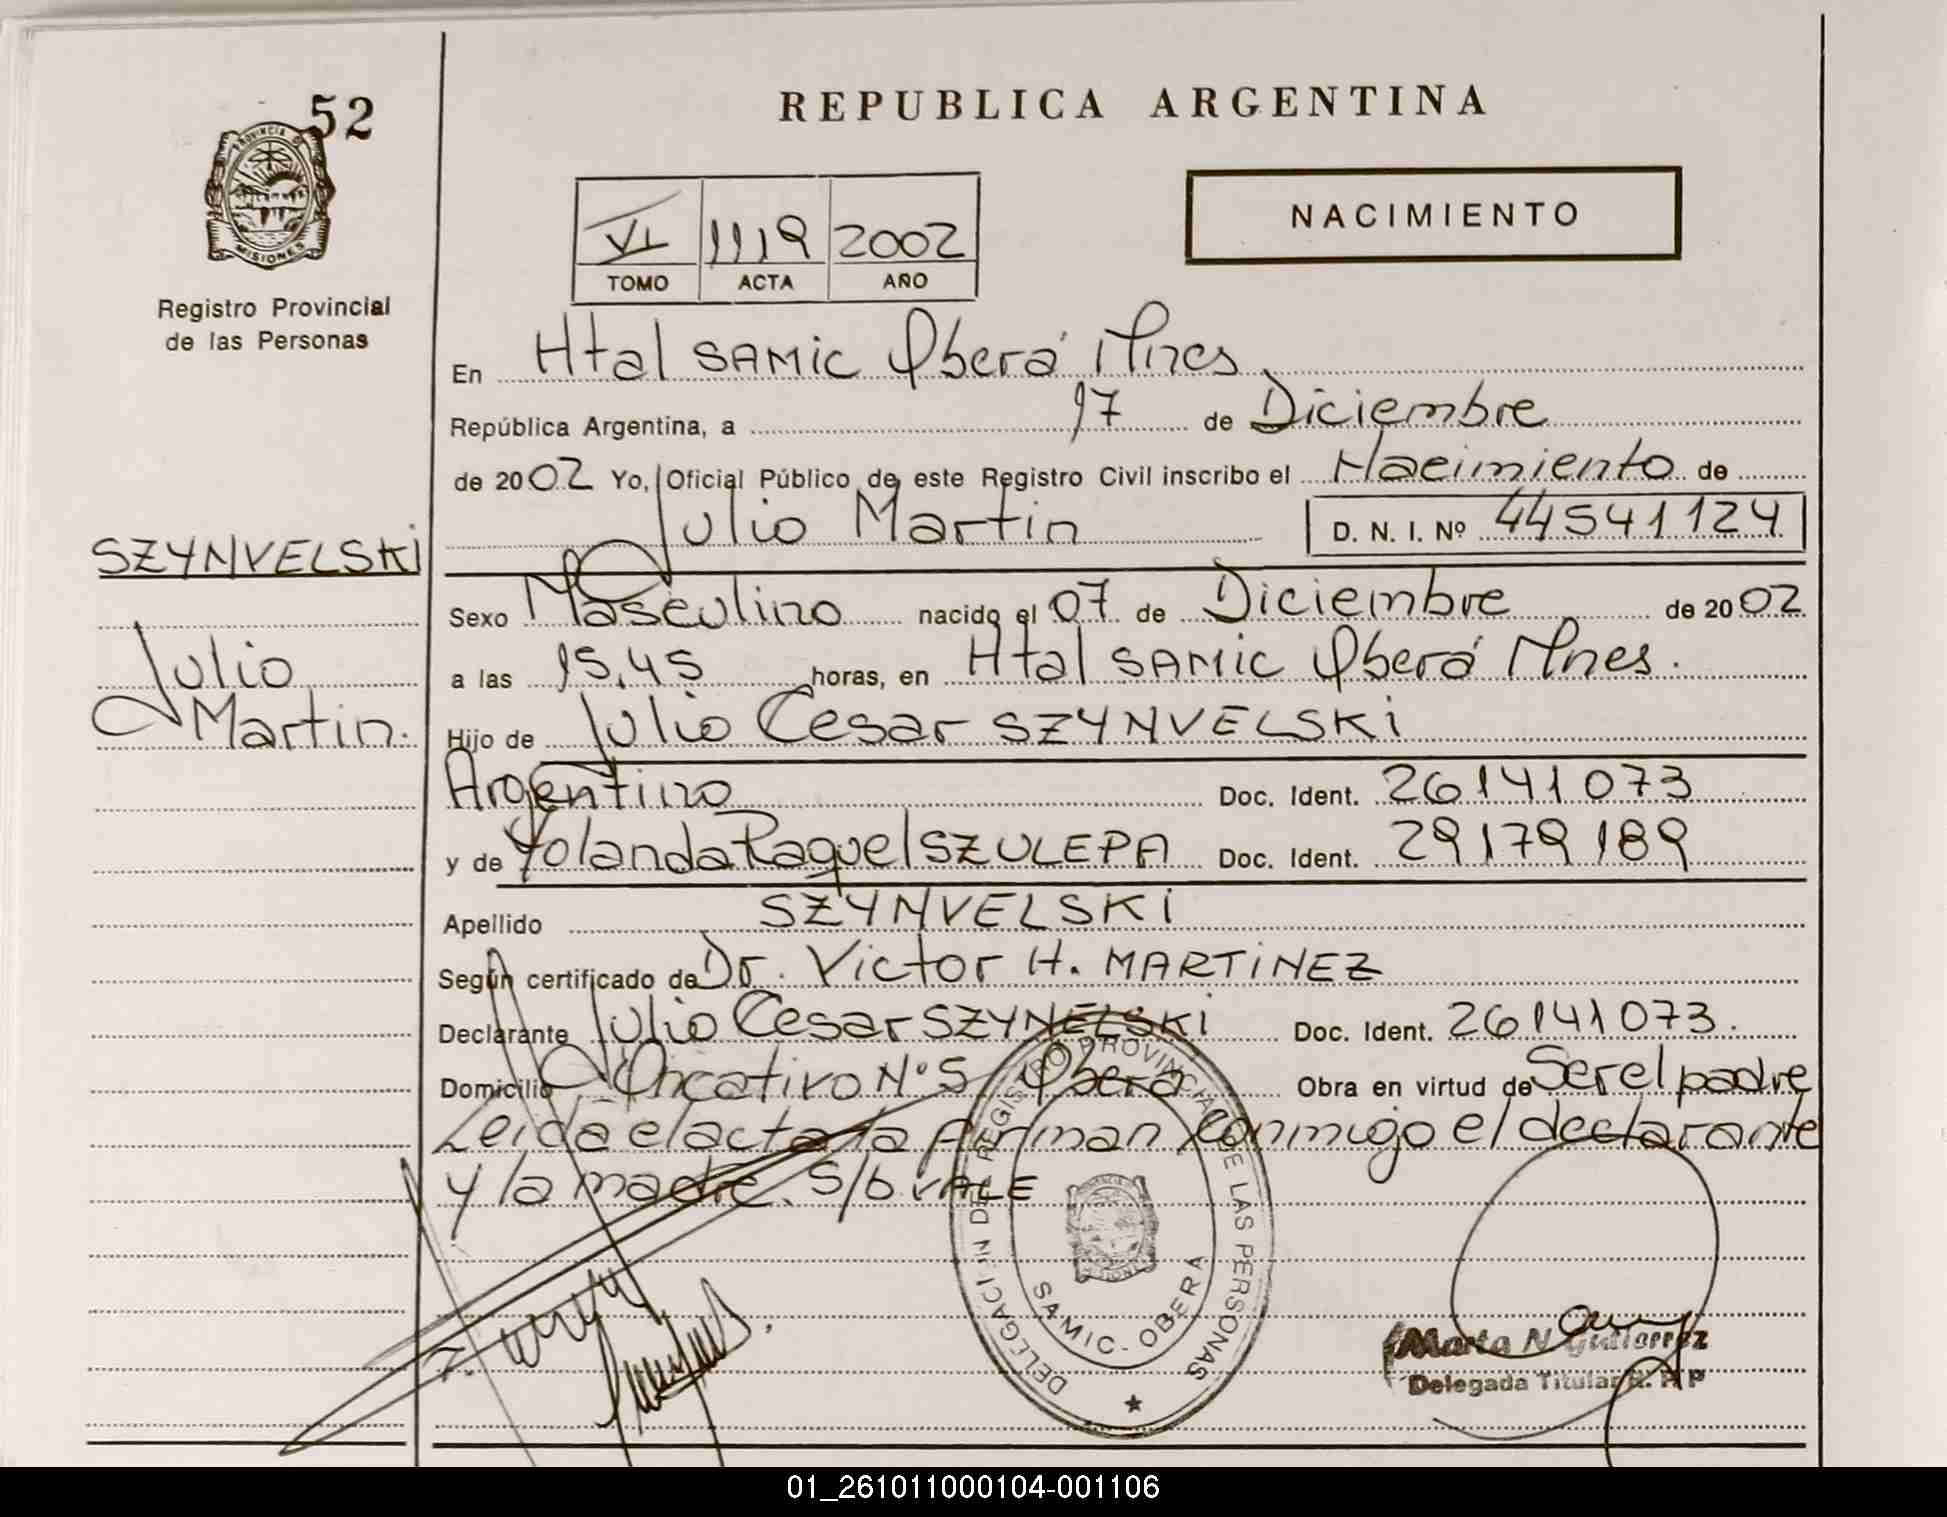 52
PROVINCIA D
MISIONES
Registro Provincial
de las Personas
REPUBLICA ARGENTINA
VI 1119 2002
TOMO ACTA AÑO
NACIMIENTO
En Htal SAMIC Oberá Mnes
República Argentina, a 17 de Diciembre
de 2002 Yo, Oficial Público de este Registro Civil inscribo el Nacimiento de
Julio Martin D. N. I. Nº 44541124
SZYNVELSKI
Julio
Martin.
Sexo Masculino nacido el 07 de Diciembre de 2002
a las 15,45 horas, en Htal SAMIC Oberá Mnes.
Hijo de Julio Cesar SZYNVELSKI
Argentino Doc. Ident. 26141073
y de Yolanda Raquel SZULEPA Doc. Ident. 29179189
Apellido SZYNVELSKI
Según certificado de Dr. Victor H. MARTINEZ
Declarante Julio Cesar SZYNELSKI Doc. Ident. 26141073.
Domicilio Oncativo Nº5 Oberá Obra en virtud de Ser el padre
Leida el acta la firman conmigo el declarante
y la madre. S/b VALE
DELEGACI N DE REGISTRO PROVINCIAL DE LAS PERSONAS
SAMIC - OBERA
Marta N Gutierrez
Delegada Titular R. P P
01_261011000104-001106